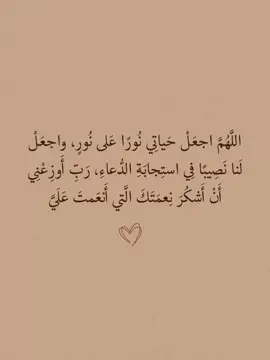 اللَّهُمَّ اجعَلْ حَياتِي نُورًا عَلى نُورٍ، واجعَلْ
لَنا نَصِيبًا فِي استِجابَةِ الدُّعاءِ، رَبِّ أَوزِعْنِي
أَنْ أَشكُرَ نِعمَتَكَ الَّتي أَنْعَمتَ عَلَيَّ